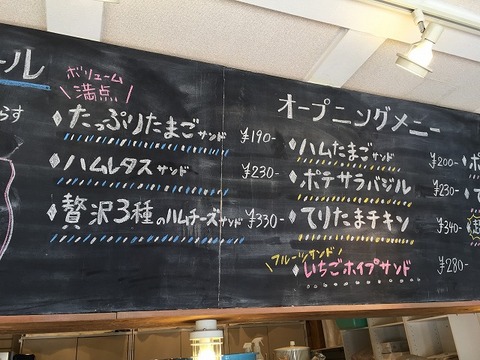 ール
らす
ボリューム
満点
たっぷりたまごサンド ¥190-
ハムレタスサンド ¥230-
贅沢3種のハムチーズサンド ¥330-
オープニングメニー
ハムたまごサンド ¥200-
ポテサラバジル ¥230-
てりたまチキン ¥340-
フルーツサンド
いちごホイップサンド ¥280-